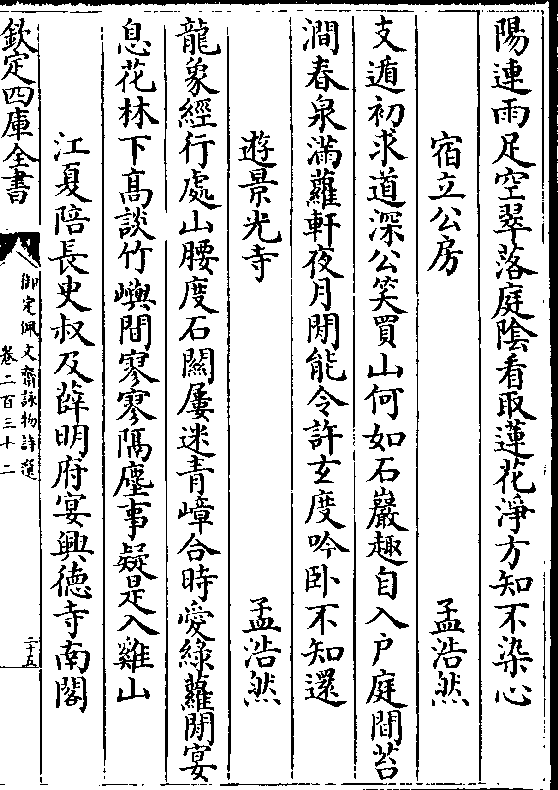 陽連雨足空翠落庭陰看取蓮花淨方知不染心
宿立公房
孟浩然
支遁初求道深公笑買山何如石巖趣自入户庭間苔
澗春泉滿蘿軒夜月閒能令許玄度吟卧不知還
遊景光寺
孟浩然
龍象經行處山腰度石關屢迷青嶂合時愛綠蘿閒宴
息花林下髙談竹嶼間寥寥隔塵事疑是入雞山
江夏陪長史叔及薛明府宴興德寺南閣
欽定四庫全書
御定佩文齋詠物詩選
卷二百三十二
三十五